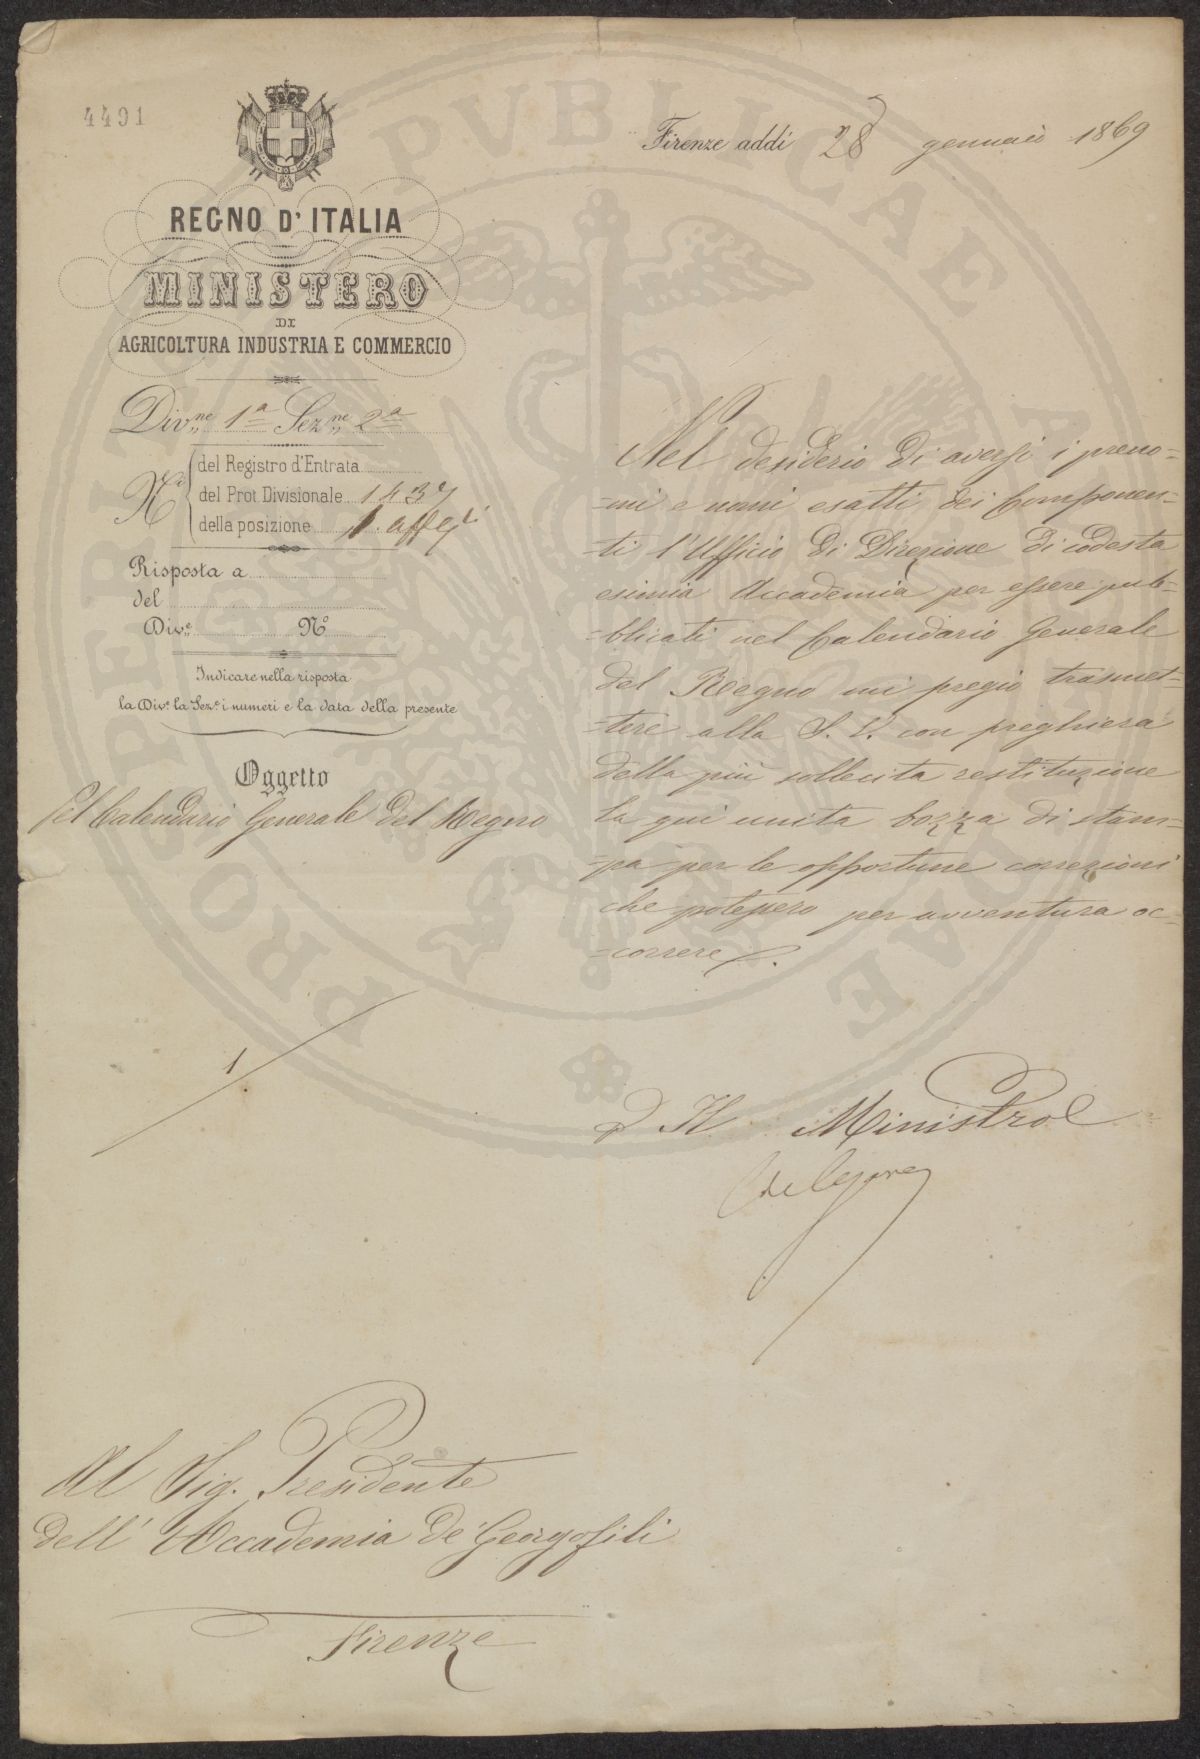 4491
Firenze addì 28 gennaio 1869
REGNO D'ITALIA
MINISTERO
DI
AGRICOLTURA INDUSTRIA E COMMERCIO
Div.ne 1a Sez.ne 2a
N.i
del Registro d'Entrata
del Prot. Divisionale 1437
della posizione
Risposta a
del
Div.e N.o
Indicare nella risposta
la Div.e la Sez.e i numeri e la data della presente
Oggetto
Pel Calendario Generale del Regno
Nel desiderio di aversi i preno=
=mi e nomi esatti dei Componen=
=ti l'Ufficio di Direzione di codesta
esimia Accademia per essere pub=
=blicati nel Calendario Generale
del Regno mi pregio trasmet=
=tere alla S. V. con preghiera
della più sollecita restituzione
la qui unita bozza di stam=
=pa per le opportune correzioni
che potessero per avventura oc=
=correre.
1
Il Ministro
Al Sig. Presidente
dell' Accademia de' Georgofili
Firenze
PUBLICAE
PROSPERITATI